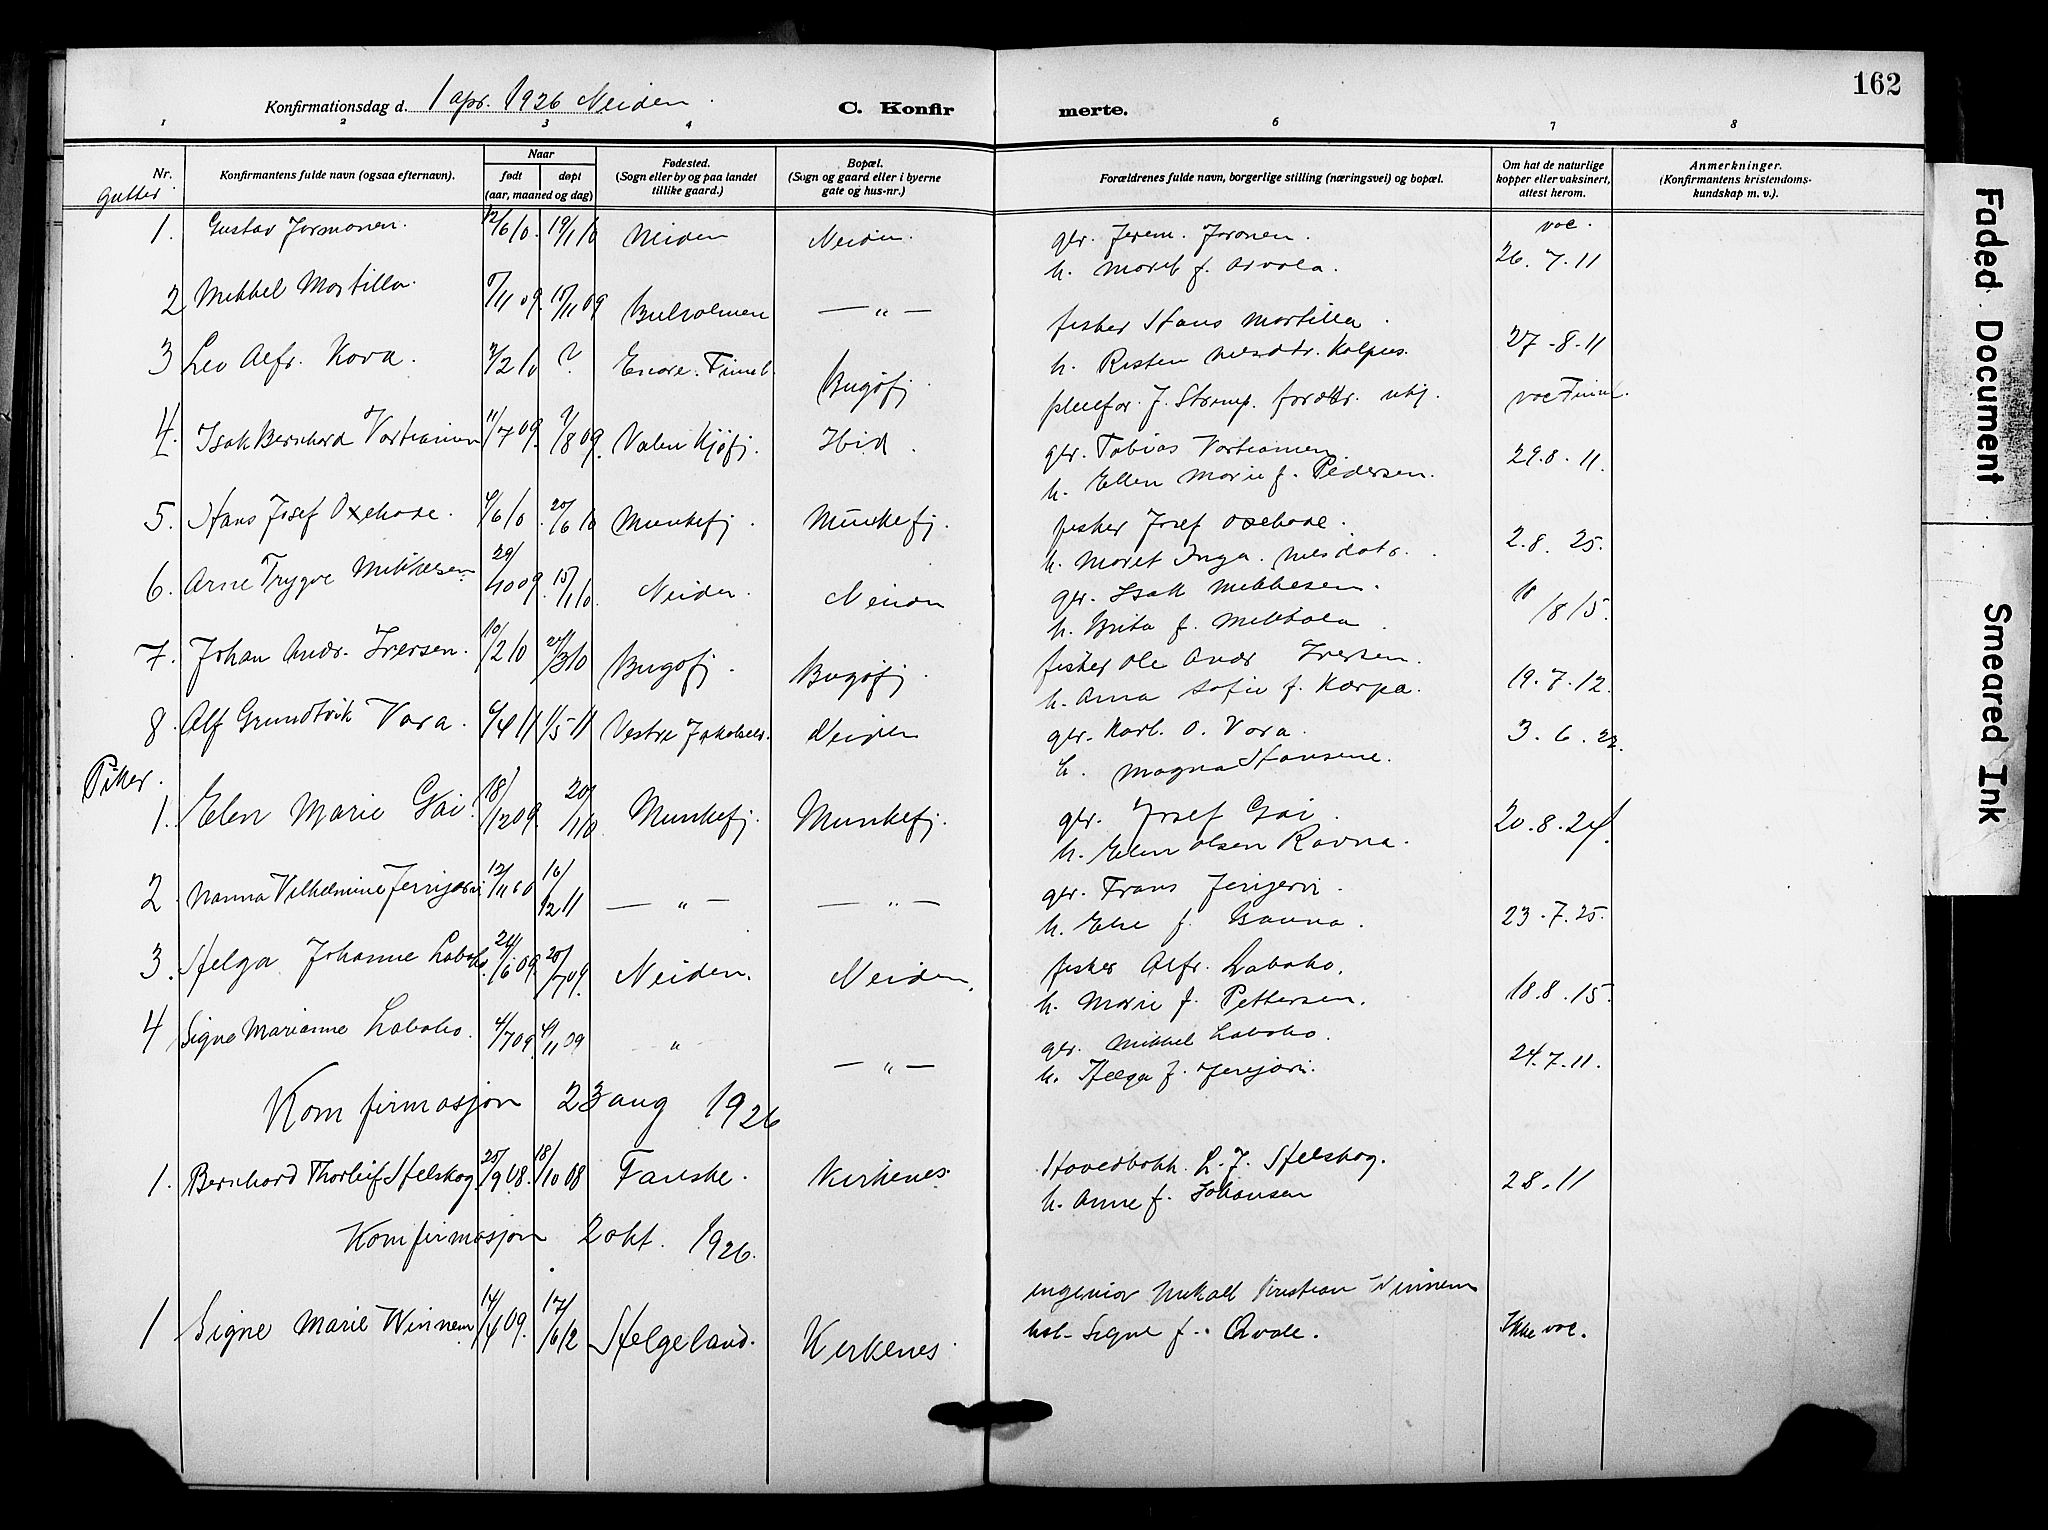 162
Konfirmationsdag d. 1 apr. 1926 Neiden.
C. Konfirmerte.
1 2 3 4 6 7 8
Nr.
Konfirmantens fulde navn (ogsaa efternavn).
Naar
født døpt
(aar, maaned og dag)
Fødested.
(Sogn eller by og paa landet
tillike gaard.)
Bopæl.
(Sogn og gaard eller i byerne
gate og hus-nr.)
Forældrenes fulde navn, borgerlige stilling (næringsvei) og bopæl.
Om hat de naturlige
kopper eller vaksinert,
attest herom.
Anmerkninger.
(Konfirmantens kristendoms-
kundskap m. v.).
Gutter
1. Gustav Jormonen. 12/6 10. 19/1 10 Neiden Neiden. gbr. Jerem. Joronen. vac.
h. Marit f. Arvola. 26.7.11
2 Mikkel Martilla. /11 09. 17/11 09 Buholmen — " — fisker Hans Martilla.
h. Risten Nilsdtr. Kalpus. 27-8-11
3 Leo Alfr. Kova. 3/2 10 ? Enare. Finnl. Bugøfj. pleiefor. J. Strømp. forøttr. ubj. vac Finnl.
4. Isak Bernhard Vartiainen 11/7 09. 9/8 09. Valen Kjøfj. Ibid. gbr. Tobias Vartiainen.
h. Ellen Marie f. Pedersen. 29.8.11.
5. Hans Josef Oxehode. 9/6 10 20/6 10 Munkefj. Munkefj. fisker Josef Oxehode.
h. Maret Inga Nilsdatr. 2.8.25.
6. Arne Trygve Mikkelsen 29/10 09. 15/1 10. Neiden. Neiden gbr. Isak Mikkelsen.
h. Brita f. Mikkola. 10/8 15.
7. Johan Andr. Iversen. 10/2 10 28/3 10 Bugøfj. Bugøfj. fisker Ole Andr Iversen.
h. Anna Sofie f. Karpa. 19.7.12.
8. Alf Grundtvik Vara. 6/4 11 1/5 11 Vestre Jakobselv. Neiden gbr. Karl. O. Vara. 3.6.22.
h. Magna Hansine.
Piker.
1. Elen Marie Gai. 18/12 09. 20/1 10 Munkefj. Munkefj. gbr. Josef Gai.
h. Elen Olsen Ravna. 20.8.24.
2 Nanna Vilhelmine Jerijærvi 12/11 60 16/12 11 — " — — " — gbr. Frans Jerijervi.
h. Else f. Banna. 23.7.25.
3. Helga Johanne Labaho. 24/6 09. 20/7 09. Neiden. Neiden. fisker Alfr. Labaho.
h. Marie f. Pettersen. 18.8.15.
4 Signe Marianne Labaho. 4/7 09. 4/11 09 " — " — gbr. Mikkel Labaho.
h. Helga f. Jerijærvi. 24.7.11.
Konfirmasjon 23 aug 1926
1. Bernhard Thorleif Helskog. 25/9 08. 18/10 08 Fauske. Kirkenes. Hovedbokh. L. J. Helskog.
h. Anne f. Johansen 28.11
Konfirmasjon 2 okt. 1926.
1 Signe Marie Winnem 14/4 09. 17/6 12 Helgeland. Kirkenes. ingeniør Mikall Kristian Winnem
h. Signe f. Qvale. Ikke vac.
Faded Document
Smeared Ink